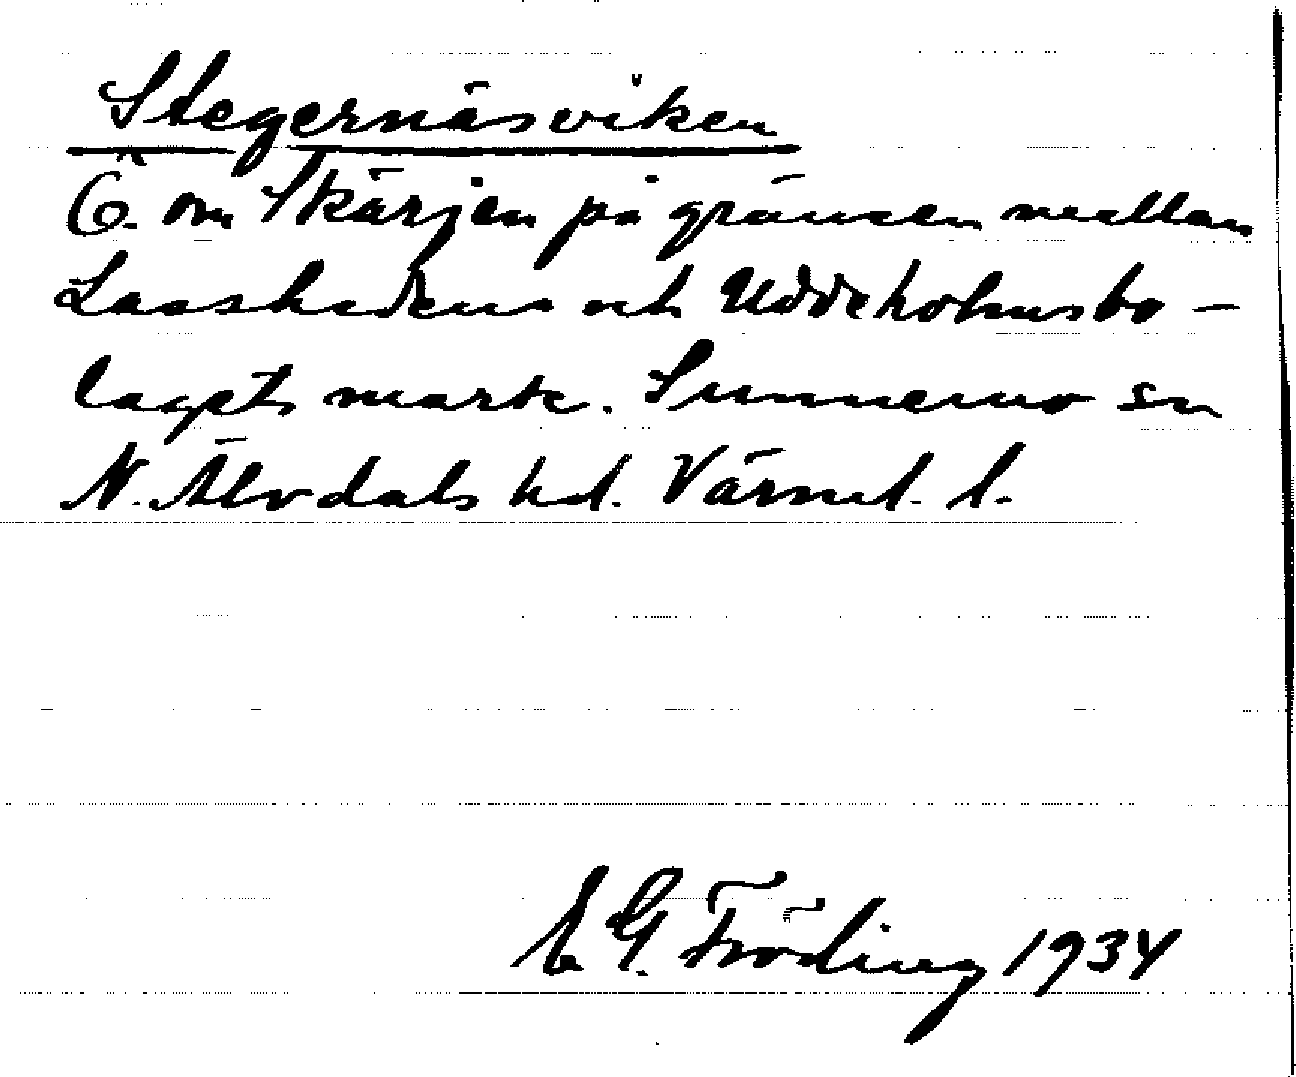 Stegernäsviken
Ö. om Skärjen på gränsen mellan
Laaskedens och Uddeholmsbo-
lagets mark. Sunnemo sn
N. Älvdals hd. Värml. l.
E G. Fröding 1934